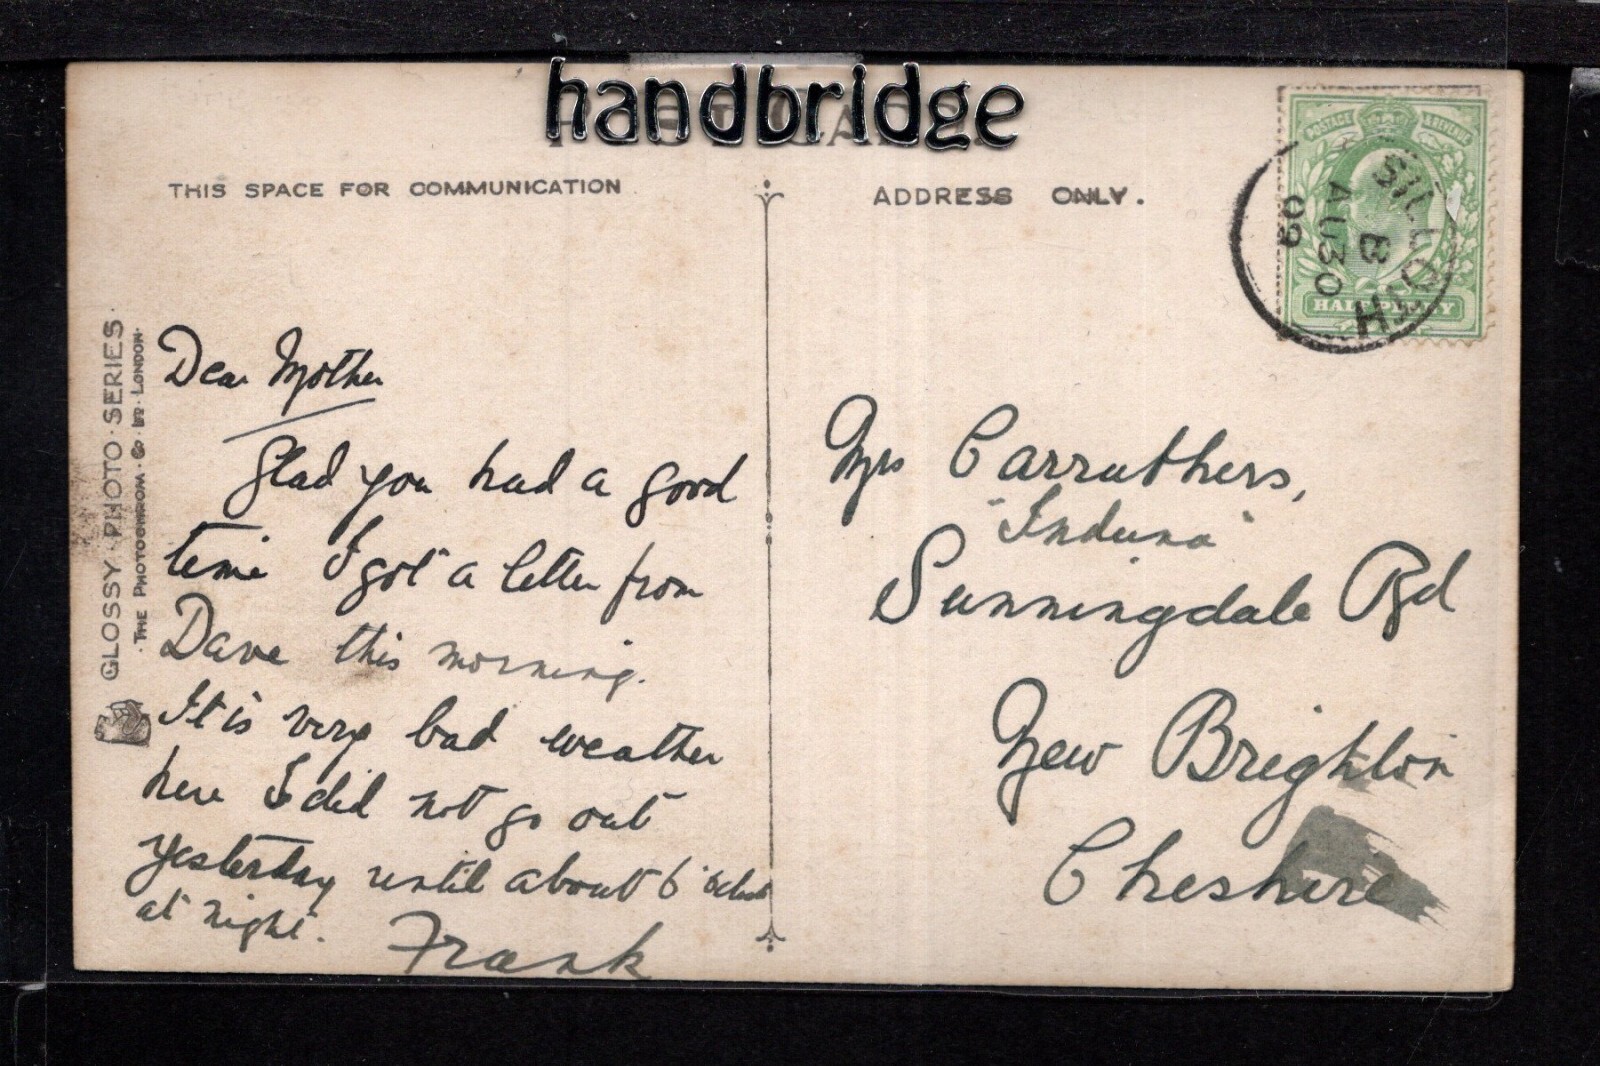 handbridge
THIS SPACE FOR COMMUNICATION
ADDRESS ONLY.
POSTAGE & REVENUE
HALFPENNY
SILLOTH
B
AU 30
09
GLOSSY · PHOTO · SERIES ·
· THE PHOTOCHROM · Co · LTD · LONDON ·
Dear Mother
Glad you had a good
time I got a letter from
Dave this morning.
It is very bad weather
here I did not go out
yesterday until about 6 o'clock
at night. Frank
Mrs Carruthers,
"Induna"
Sunningdale Rd
New Brighton
Cheshire